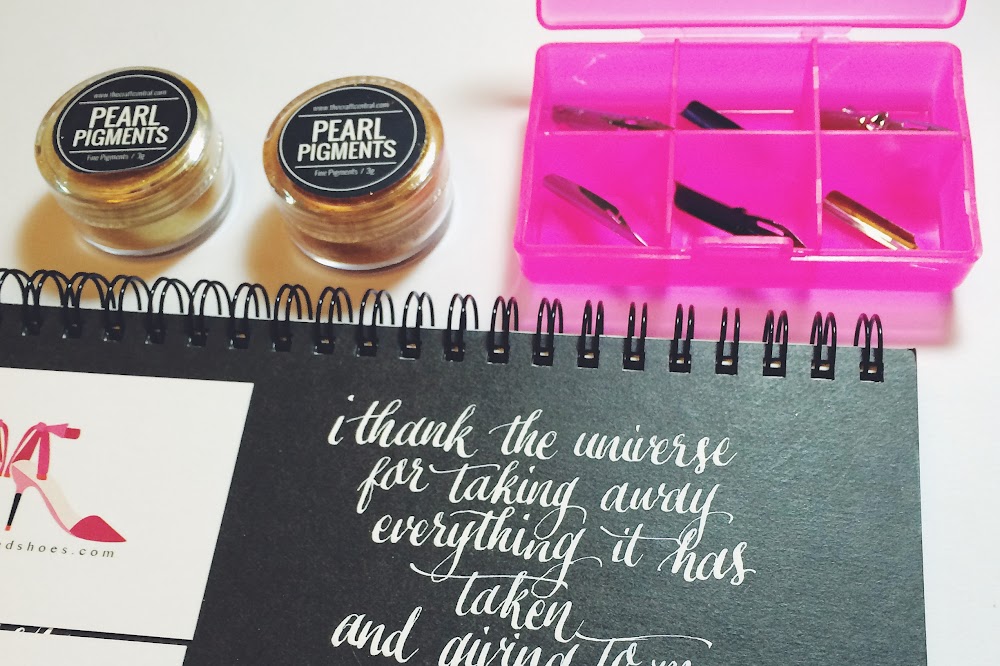 www.thecraftcentral.com
PEARL
PIGMENTS
Fine Pigments / 3g
www.thecraftcentral.com
PEARL
PIGMENTS
Fine Pigments / 3g
edshoes.com
i thank the universe
for taking away
everything it has
taken
and giving to m